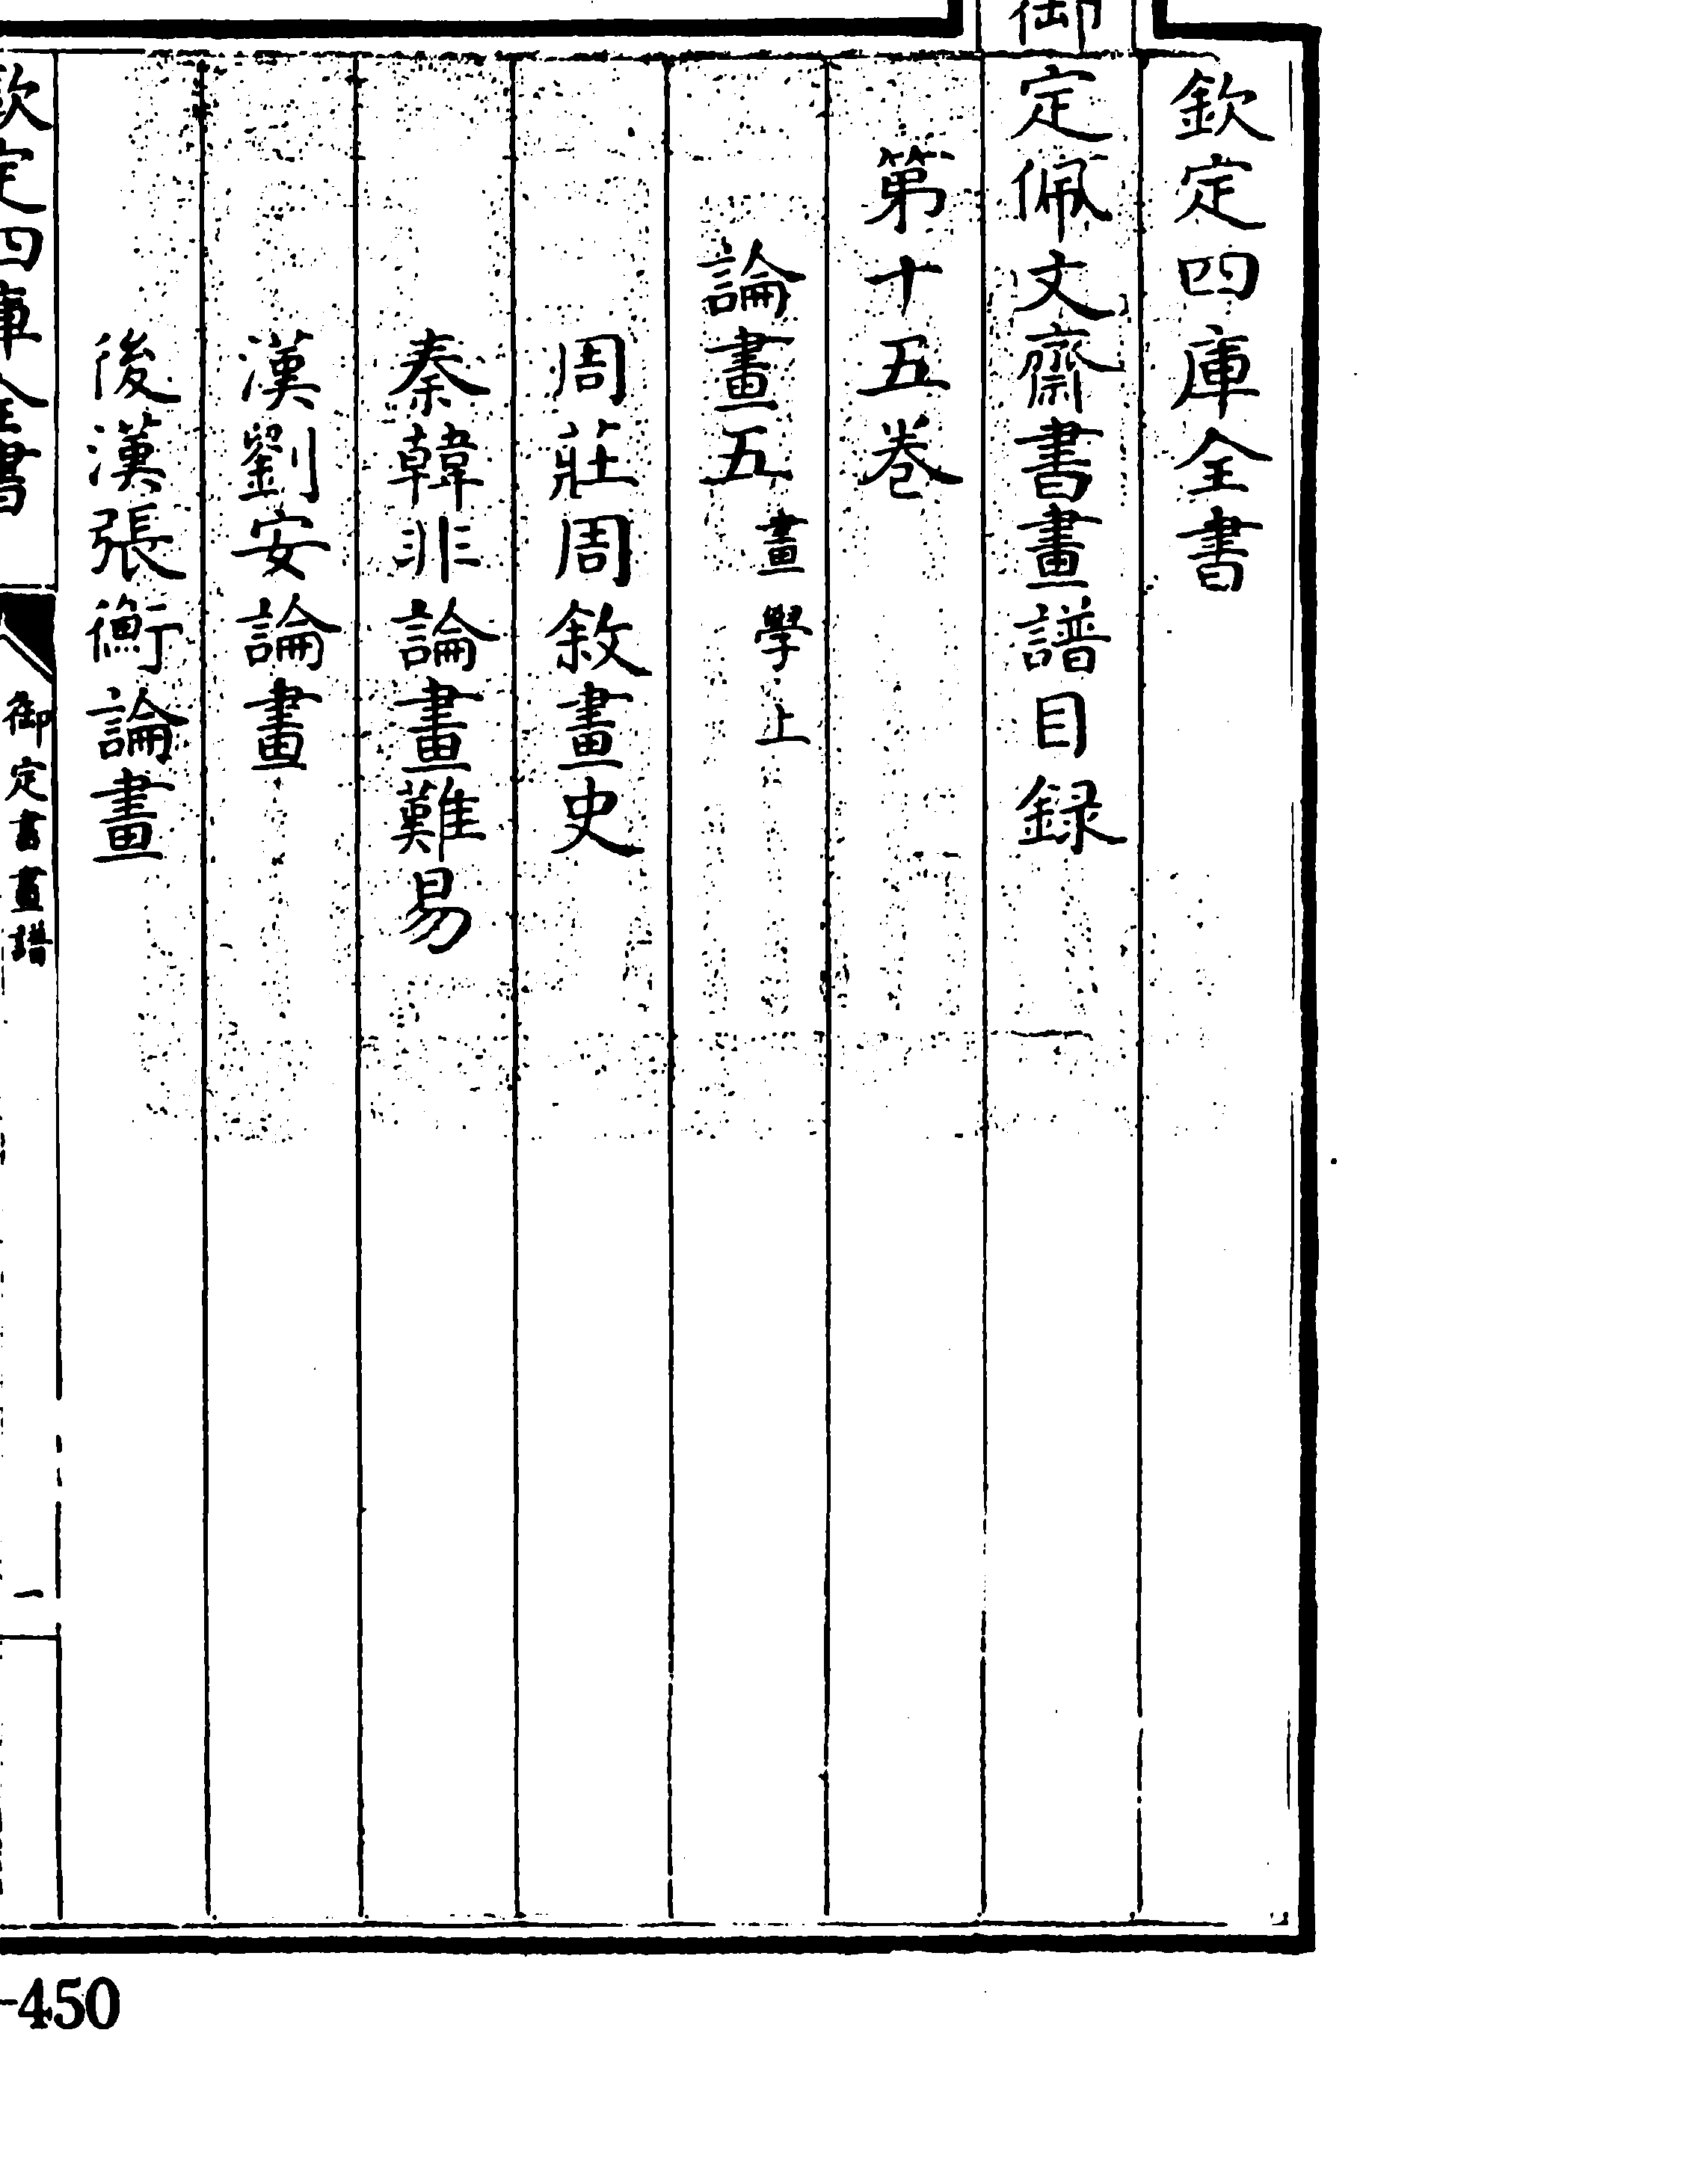 欽定四庫全書
御定佩文齋書畫譜目録
第十五卷
論畫五 畫學上
周莊周敘畫史
秦韓非論畫難易
漢劉安論畫
後漢張衡論畫
欽定四庫全書
御定書畫譜
一
-450